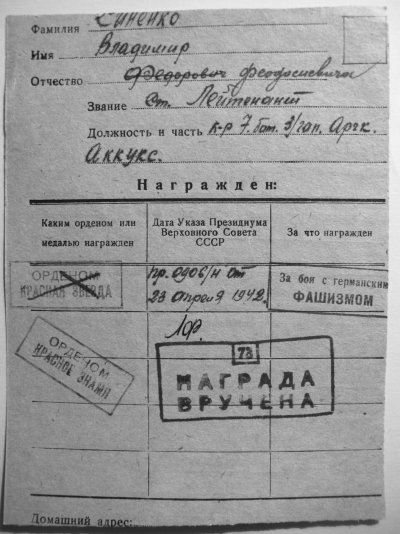 Фамилия Синенко
Имя Владимир
Отчество Федорович Феодосиевич
Звание Ст. Лейтенант
Должность и часть к-р 7. бат. 3/гап. Аргк.
Аккукс.
Награжден:
Каким орденом или медалью награжден
Дата Указа Президиума Верховного Совета СССР
За что награжден
ОРДЕНОМ
КРАСНАЯ ЗВЕЗДА
пр. 0906/н от
23 апреля 1942г.
За бои с германским
ФАШИЗМОМ
ОРДЕНОМ
КРАСНОЕ ЗНАМЯ
73
НАГРАДА
ВРУЧЕНА
Домашний адрес: